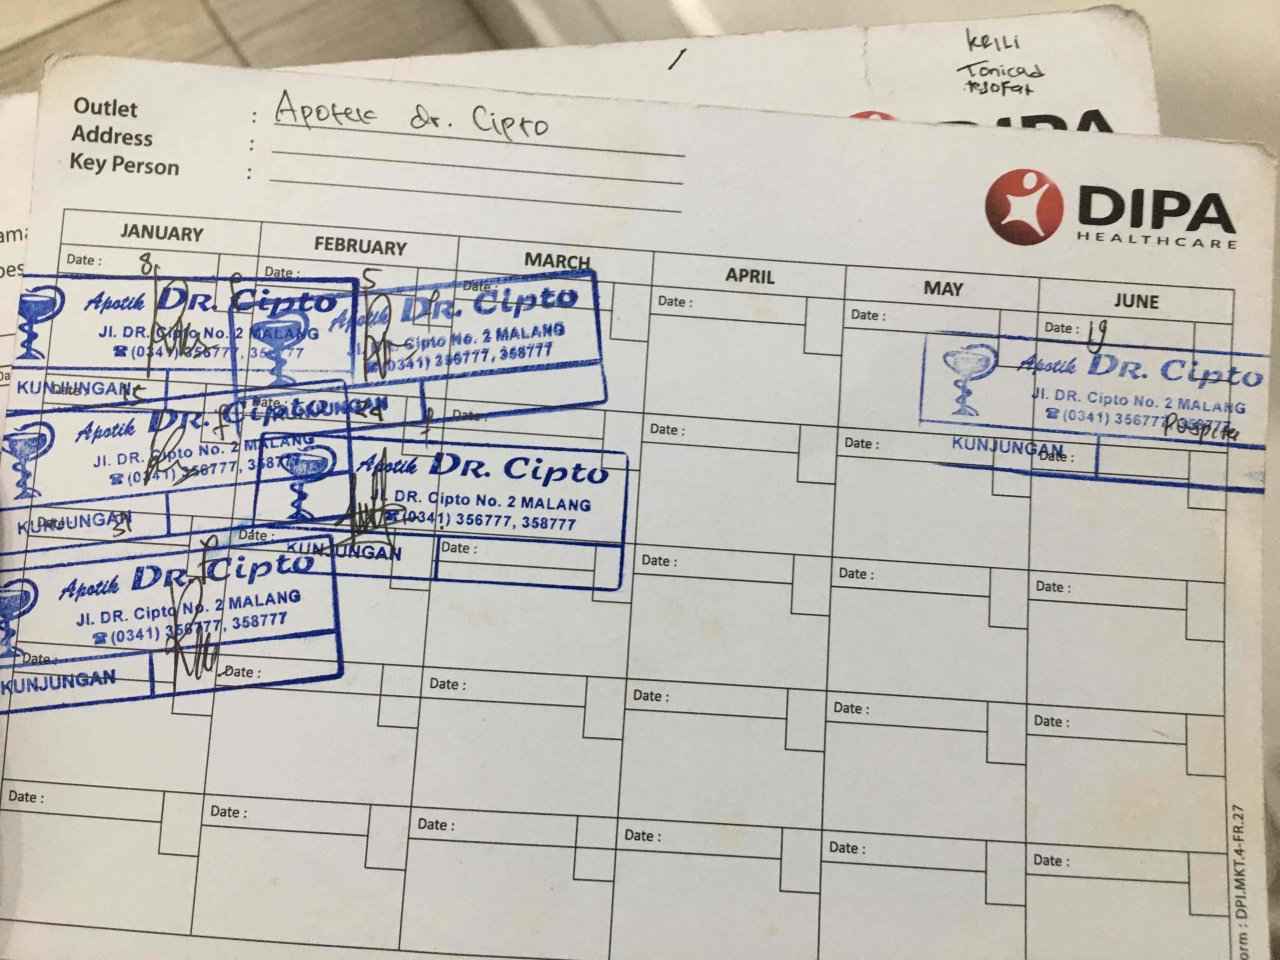 KRILI
Tonicad
Outlet : Apotek dr. Cipto
Address :
Key Person :
DIPA
HEALTHCARE
JANUARY FEBRUARY MARCH APRIL MAY JUNE
Date : 8 Date : 5 Date : Date : Date : Date : 19
Apotik DR. Cipto
Jl. DR. Cipto No. 2 MALANG
☎(0341) 356777, 358777
KUNJUNGAN
Apotik DR. Cipto
Jl. DR. Cipto No. 2 MALANG
(0341) 356777, 358777
KUNJUNGAN
Apotik DR. Cipto
Jl. DR. Cipto No. 2 MALANG
☎(0341) 356777, 358777
KUNJUNGAN
Puspita
Date : 15 Date : 24 Date : Date : Date : Date :
Apotik DR. Cipto
Jl. DR. Cipto No. 2 MALANG
☎(0341) 356777, 358777
KUNJUNGAN
Apotik DR. Cipto
DR. Cipto No. 2 MALANG
(0341) 356777, 358777
KUNJUNGAN
Date : 31 Date : Date : Date : Date : Date :
Apotik DR. Cipto
Jl. DR. Cipto No. 2 MALANG
☎(0341) 356777, 358777
KUNJUNGAN
Date : Date : Date : Date : Date : Date :
Date : Date : Date : Date : Date : Date :
orm : DPI.MKT.4-FR.27